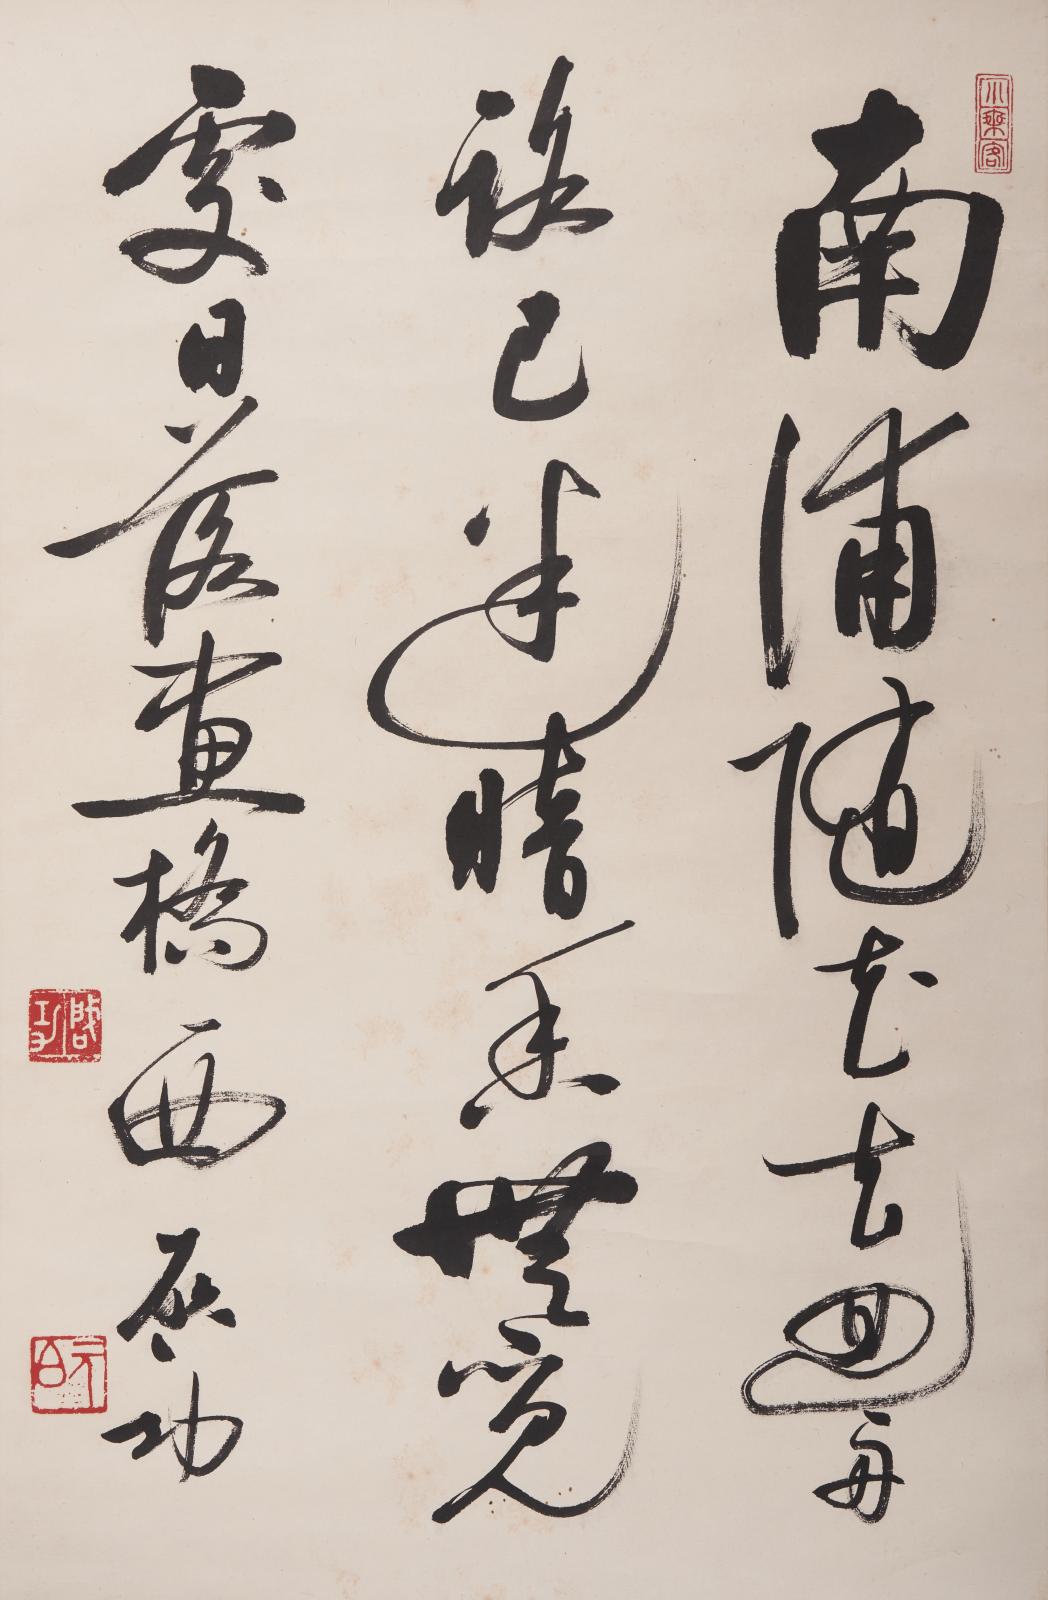 南浦随花去迴舟
路已迷暗香無覓
處日落畫橋西 启功
小乘客
啟功
元白